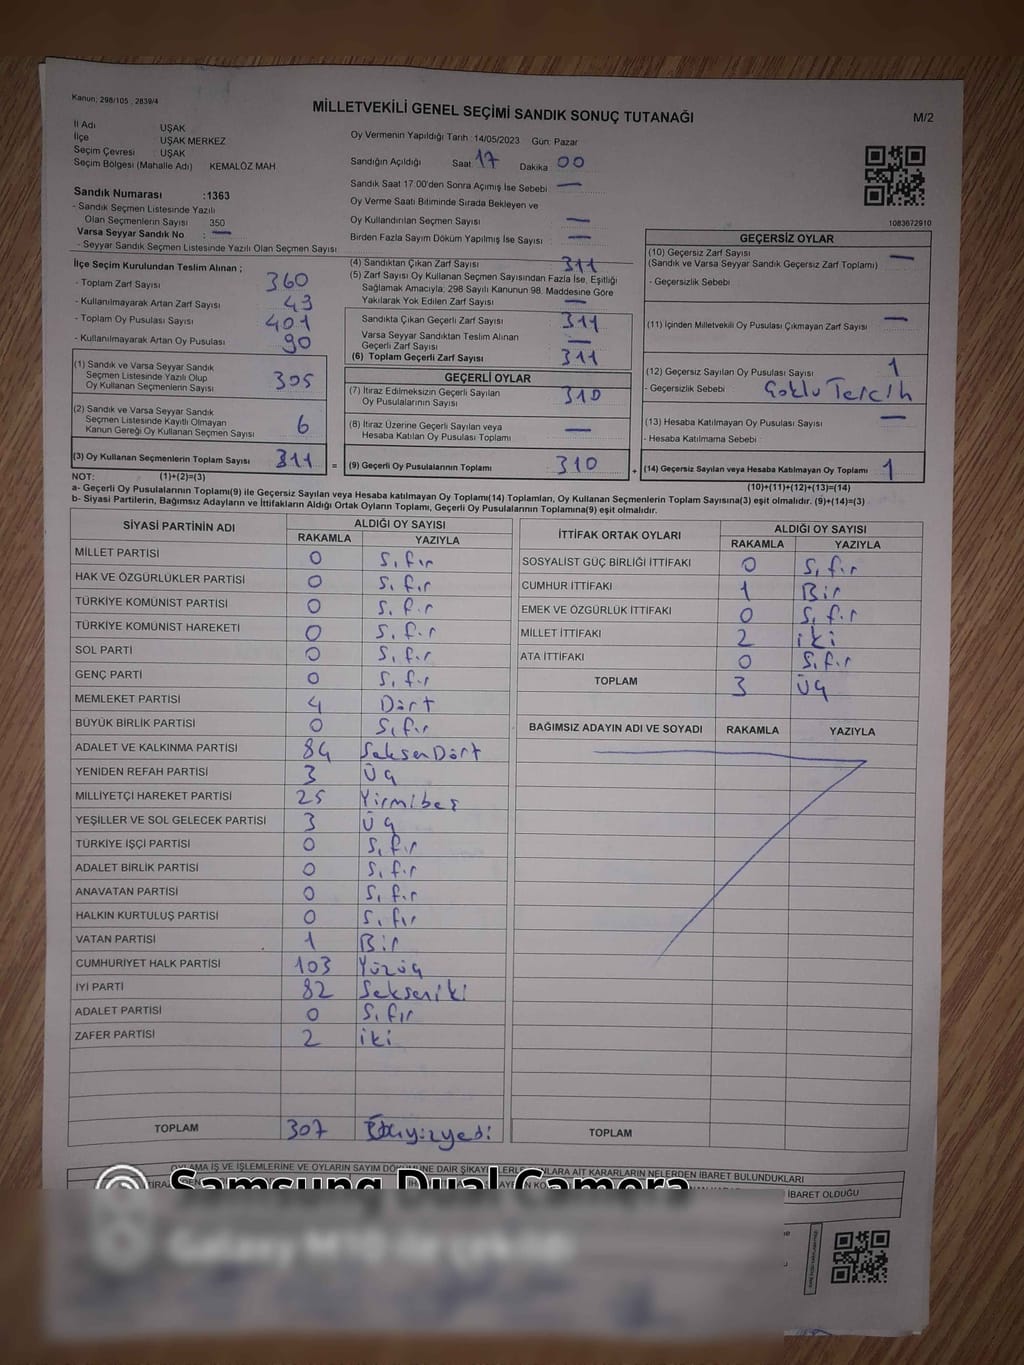 Kanun; 298/105 , 2839/4
MİLLETVEKİLİ GENEL SEÇİMİ SANDIK SONUÇ TUTANAĞI
M/2
İl Adı UŞAK
İlçe UŞAK MERKEZ
Seçim Çevresi UŞAK
Seçim Bölgesi (Mahalle Adı) KEMALÖZ MAH.
Sandık Numarası :1363
- Sandık Seçmen Listesinde Yazılı
Olan Seçmenlerin Sayısı 350
Varsa Seyyar Sandık No : —
- Seyyar Sandık Seçmen Listesinde Yazılı Olan Seçmen Sayısı
Oy Vermenin Yapıldığı Tarih :14/05/2023 Gün: Pazar
Sandığın Açıldığı Saat 17 Dakika 00
Sandık Saat 17:00'den Sonra Açımış İse Sebebi —
Oy Verme Saati Bitiminde Sırada Bekleyen ve
Oy Kullandırılan Seçmen Sayısı —
Birden Fazla Sayım Döküm Yapılmış İse Sayısı —
1083672910
İlçe Seçim Kurulundan Teslim Alınan ;
- Toplam Zarf Sayısı 360
- Kullanılmayarak Artan Zarf Sayısı 43
- Toplam Oy Pusulası Sayısı 401
- Kullanılmayarak Artan Oy Pusulası 90
(1) Sandık ve Varsa Seyyar Sandık
Seçmen Listesinde Yazılı Olup
Oy Kullanan Seçmenlerin Sayısı 305
(2) Sandık ve Varsa Seyyar Sandık
Seçmen Listesinde Kayıtlı Olmayan
Kanun Gereği Oy Kullanan Seçmen Sayısı 6
(3) Oy Kullanan Seçmenlerin Toplam Sayısı 311 =
(4) Sandıktan Çıkan Zarf Sayısı 311
(5) Zarf Sayısı Oy Kullanan Seçmen Sayısından Fazla İse, Eşitliği
Sağlamak Amacıyla; 298 Sayılı Kanunun 98. Maddesine Göre
Yakılarak Yok Edilen Zarf Sayısı —
Sandıkta Çıkan Geçerli Zarf Sayısı 311
Varsa Seyyar Sandıktan Teslim Alınan
Geçerli Zarf Sayısı —
(6) Toplam Geçerli Zarf Sayısı 311
GEÇERLİ OYLAR
(7) İtiraz Edilmeksizin Geçerli Sayılan
Oy Pusulalarının Sayısı 310
(8) İtiraz Üzerine Geçerli Sayılan veya
Hesaba Katılan Oy Pusulası Toplamı —
(9) Geçerli Oy Pusulalarının Toplamı 310 +
GEÇERSİZ OYLAR
(10) Geçersiz Zarf Sayısı
(Sandık ve Varsa Seyyar Sandık Geçersiz Zarf Toplamı) —
- Geçersizlik Sebebi
(11) İçinden Milletvekili Oy Pusulası Çıkmayan Zarf Sayısı —
(12) Geçersiz Sayılan Oy Pusulası Sayısı 1
- Geçersizlik Sebebi Çoklu Tercih
(13) Hesaba Katılmayan Oy Pusulası Sayısı —
- Hesaba Katılmama Sebebi
(14) Geçersiz Sayılan veya Hesaba Katılmayan Oy Toplamı 1
NOT: (1)+(2)=(3)
(10)+(11)+(12)+(13)=(14)
a- Geçerli Oy Pusulalarının Toplamı(9) ile Geçersiz Sayılan veya Hesaba katılmayan Oy Toplamı(14) Toplamları, Oy Kullanan Seçmenlerin Toplam Sayısına(3) eşit olmalıdır. (9)+(14)=(3)
b- Siyasi Partilerin, Bağımsız Adayların ve İttifakların Aldığı Ortak Oyların Toplamı, Geçerli Oy Pusulalarının Toplamına(9) eşit olmalıdır.
SİYASİ PARTİNİN ADI ALDIĞI OY SAYISI
RAKAMLA YAZIYLA
MİLLET PARTİSİ 0 Sıfır
HAK VE ÖZGÜRLÜKLER PARTİSİ 0 Sıfır
TÜRKİYE KOMÜNİST PARTİSİ 0 Sıfır
TÜRKİYE KOMÜNİST HAREKETİ 0 Sıfır
SOL PARTİ 0 Sıfır
GENÇ PARTİ 0 Sıfır
MEMLEKET PARTİSİ 4 Dört
BÜYÜK BİRLİK PARTİSİ 0 Sıfır
ADALET VE KALKINMA PARTİSİ 84 SeksenDört
YENİDEN REFAH PARTİSİ 3 Üç
MİLLİYETÇİ HAREKET PARTİSİ 25 Yirmibeş
YEŞİLLER VE SOL GELECEK PARTİSİ 3 Üç
TÜRKİYE İŞÇİ PARTİSİ 0 Sıfır
ADALET BİRLİK PARTİSİ 0 Sıfır
ANAVATAN PARTİSİ 0 Sıfır
HALKIN KURTULUŞ PARTİSİ 0 Sıfır
VATAN PARTİSİ 1 Bir
CUMHURİYET HALK PARTİSİ 103 Yüzüç
İYİ PARTİ 82 Sekseniki
ADALET PARTİSİ 0 Sıfır
ZAFER PARTİSİ 2 iki
TOPLAM 307 Üçyüzyedi
İTTİFAK ORTAK OYLARI ALDIĞI OY SAYISI
RAKAMLA YAZIYLA
SOSYALİST GÜÇ BİRLİĞİ İTTİFAKI 0 Sıfır
CUMHUR İTTİFAKI 1 Bir
EMEK VE ÖZGÜRLÜK İTTİFAKI 0 Sıfır
MİLLET İTTİFAKI 2 iki
ATA İTTİFAKI 0 Sıfır
TOPLAM 3 Üç
BAĞIMSIZ ADAYIN ADI VE SOYADI RAKAMLA YAZIYLA
TOPLAM
OYLAMA İŞ VE İŞLEMLERİNE VE OYLARIN SAYIM DÖKÜMÜNE DAİR ŞİKAYET
KARARLARIN NELERDEN İBARET BULUNDUKLARI
İBARET OLDUĞU
Samsung Dual Camera